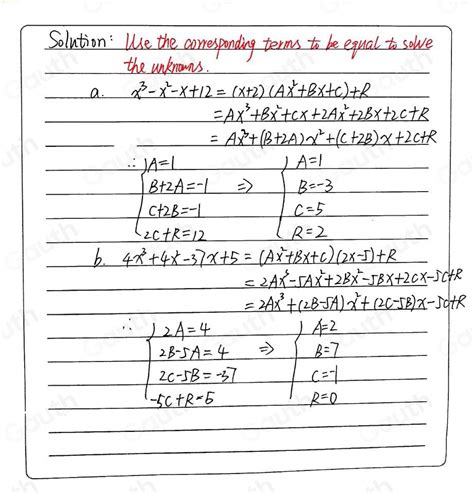 Solution: Use the corresponding terms to be equal to solve
the unknowns.
a. x³-x²-x+12=(x+2)(Ax²+Bx+C)+R
=Ax³+Bx²+Cx+2Ax²+2Bx+2C+R
=Ax³+(B+2A)x²+(C+2B)x+2C+R
∴ { A=1 { A=1
B+2A=-1 ⇒ B=-3
C+2B=-1 C=5
2C+R=12 R=2
b. 4x³+4x²-37x+5=(Ax²+Bx+C)(2x-5)+R
=2Ax³-5Ax²+2Bx²-5Bx+2Cx-5C+R
=2Ax³+(2B-5A)x²+(2C-5B)x-5C+R
∴ { 2A=4 { A=2
2B-5A=4 ⇒ B=7
2C-5B=-37 C=-1
-5C+R=5 R=0
Gauth